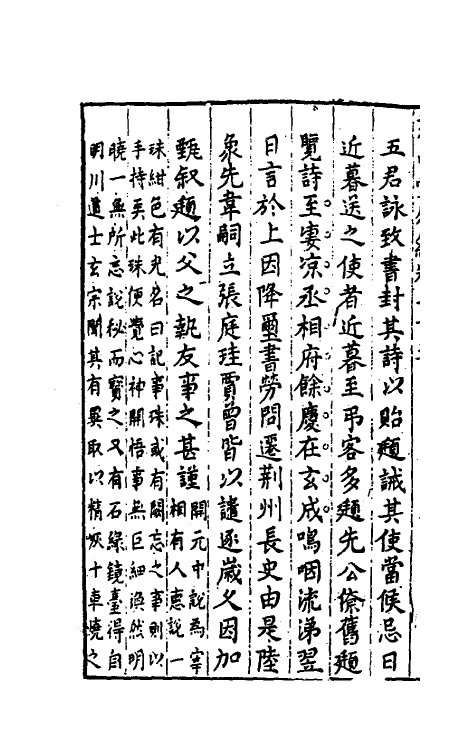 五君詠致書封其詩以貽頲誡其使當候忌日
近暮送之使者近暮至弔客多頲先公僚舊頲
覽詩至凄凉丞相府餘慶在玄成嗚咽流涕翌
日言於上因降璽書勞問遷荆州長史由是陸
象先韋嗣立張庭珪賈曾皆以譴逐歲乆因加
甄叙頲以父之執友事之甚謹開元中説爲宰
相有人惠説一
珠紺色有光名曰記事珠或有闕忘之事則以
手持弄此珠便覺心神開悟事無巨細渙然明
曉一無所忘說秘而寳之又有石緑鏡臺得自
明川道士玄宗聞其有異取以精炭十車燒之